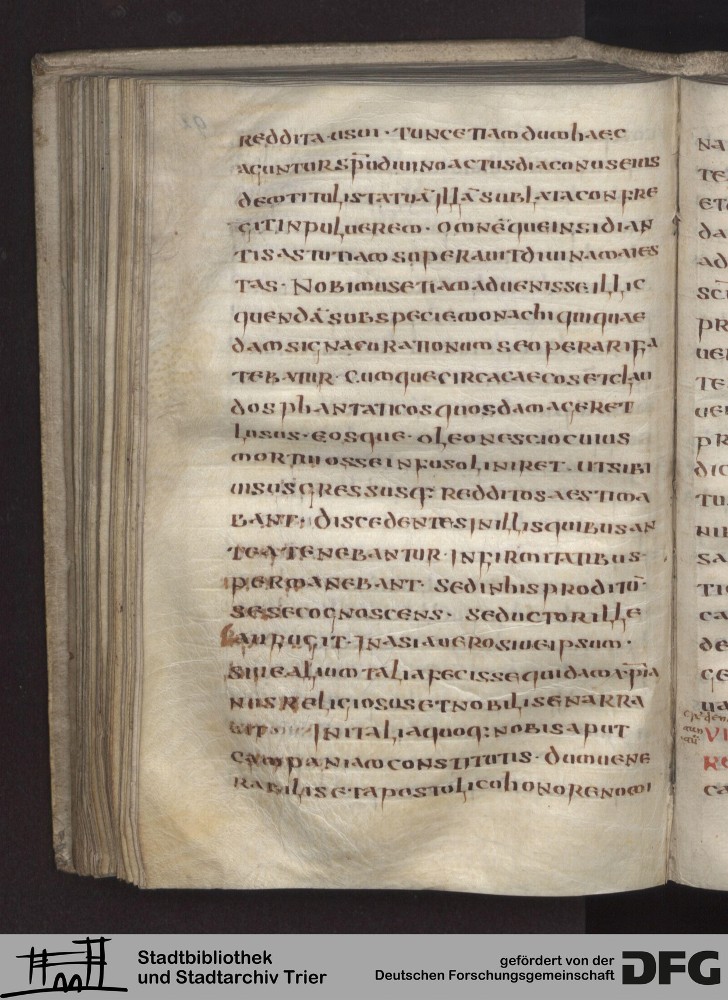 REDDITA USUI · TUNC ETIAM DUM HAEC
AGUNTUR SP̄U DIUINO ACTUS DIACONUS EIUS
DEM TITULI STATUĀ ILLĀ SUBLATA CONFRE
GIT IN PULUEREM · OMNĒQUE INSIDIAN
TIS ASTUTIAM SUPERAUIT DIUINA MAIES
TAS · NOBIMUS ETIAM ADUENISSE ILLIC
QUENDĀ SUB SPECIE MONACHI QUI QUAE
DAM SIGNA CURATIONUM SE OPERARI IFTA
TEBATUR · CUMQUE CIRCA CAECOS ET CLAU
DOS PHANTATICOS QUOSDAM AGERET
LUSUS · EOSQUE · OLEO NESCIO CUIUS
MORTUI OSSE INFUSO LINIRET · UT SIBI
UISUS GRESSUSQ: REDDITOS AESTIMA
BANT; DISCEDENTES IN ILLIS QUIBUS AN
TEA TENEBANTUR · INFIRMITATIBUS
PERMANEBANT · SED IN HIS PRODITŪ
SESE COGNOSCENS · SEDUCTOR ILLE
AUFUGIT · IN ASIA UERO SIUE IPSUM ·
SIUE ALIUM TALIA FECISSE QUIDAM XP̄IA
NUS RELIGIOSUS ET NOBILIS ENARRA
IN ITALIA QUOQ: NOBIS APUT
CAMPANIAM CONSTITUTIS · DUM UENE
RABILIS ET APOSTOLICO HONORE NOMI
NA
TE
ET
DA
AD
SC̄
PR
UE
TE
UE
PR
DIC
TU
NI
SA
TI
CA
DE
CE
UA
VI
RE
CA
Stadtbibliothek
und Stadtarchiv Trier
gefördert von der
Deutschen Forschungsgemeinschaft
DFG